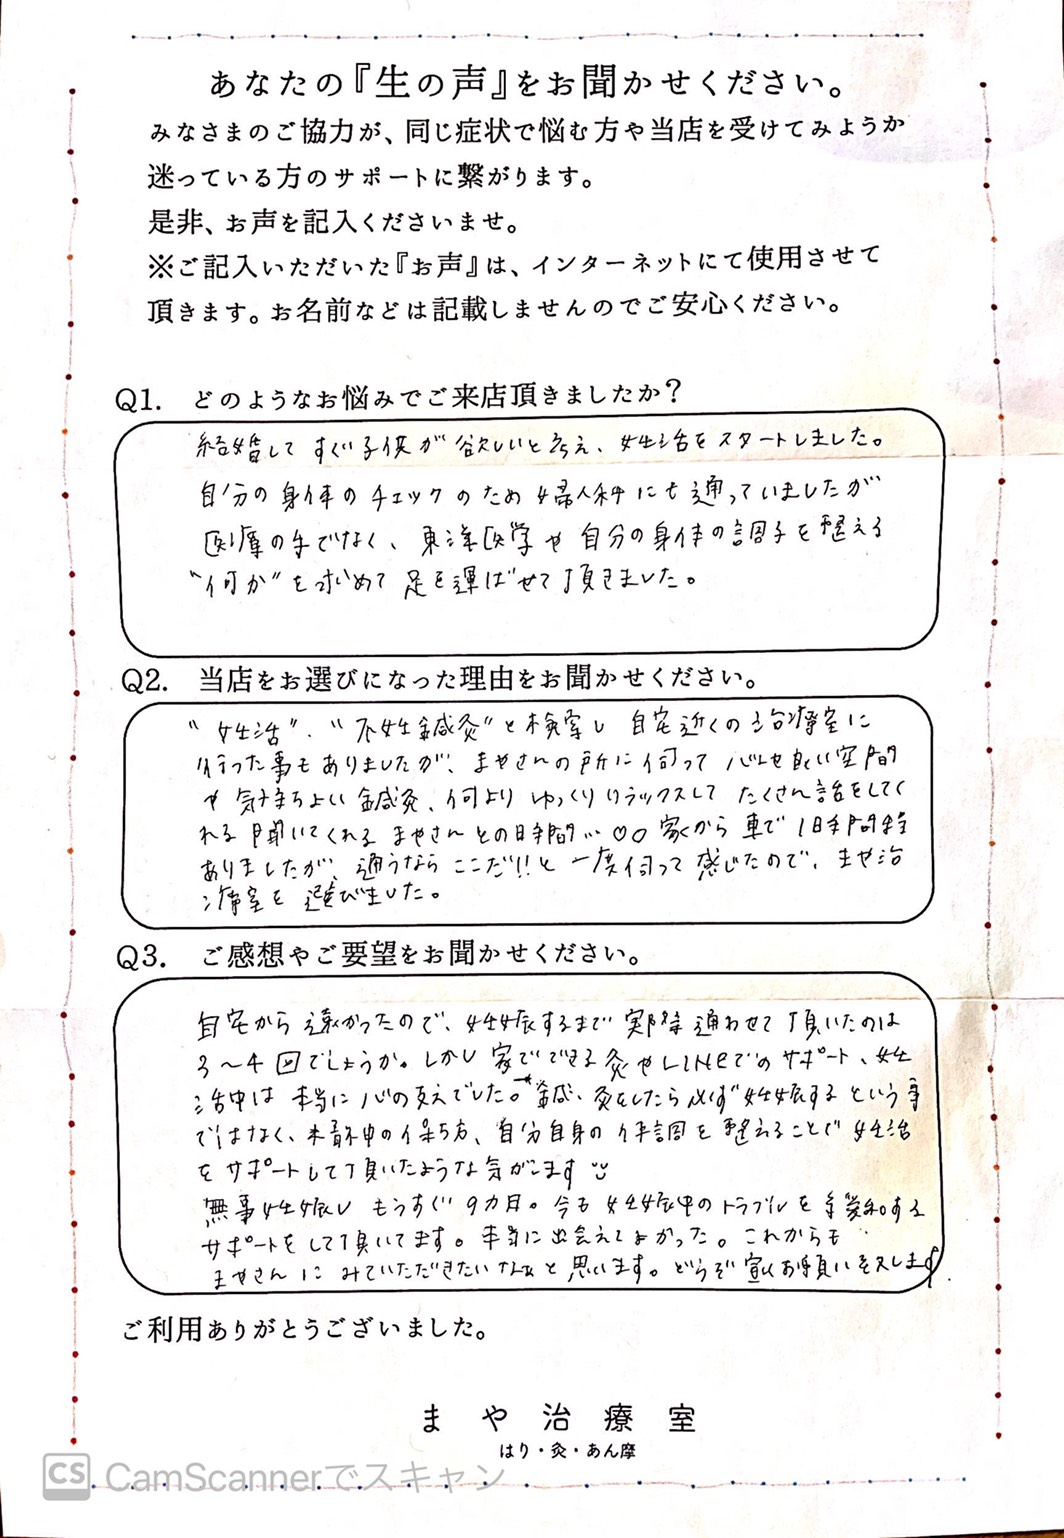 あなたの『生の声』をお聞かせください。
みなさまのご協力が、同じ症状で悩む方や当店を受けてみようか
迷っている方のサポートに繋がります。
是非、お声を記入くださいませ。
※ご記入いただいた『お声』は、インターネットにて使用させて
頂きます。お名前などは記載しませんのでご安心ください。
Q1. どのようなお悩みでご来店頂きましたか？
結婚して すぐ子供が欲しいと考え、妊活をスタートしました。
自分の身体のチェックのため婦人科にも通っていましたが
医療の手でなく、東洋医学や自分の身体の調子を整える
"何か"を求めて足を運ばせて頂きました。
Q2. 当店をお選びになった理由をお聞かせください。
"妊活"、"不妊鍼灸"と検索し 自宅近くの治療室に
行った事もありましたが、まやさんの所に伺って 心地良い空間
や 気持ちよい鍼灸、何より ゆっくりリラックスして たくさん話をしてく
れる 聞いてくれる まやさんとの時間…♡♡ 家から車で1時間程
ありましたが、通うなら ここだ!!と 一度伺って感じたので、まや治
療室を選びました。
Q3. ご感想やご要望をお聞かせください。
自宅から遠かったので、妊娠するまで実際通わせて頂いたのは
3〜4回でしょうか。しかし家でできる灸やLINEでのサポート、妊
活中は本当に心の支えでした。鍼、灸をしたら必ず妊娠するという事
ではなく、木期中の保ち方、自分自身の体調を整えることで妊活
をサポートして頂いたような気がします
無事妊娠し もうすぐ9カ月。今も妊娠中のトラブルを緩和する
サポートをして頂いてます。本当に出会えてよかった。これからも
まやさんに みていただきたいなぁと思います。どうぞ宜しくお願い致します
ご利用ありがとうございました。
まや治療室
はり・灸・あん摩
CS CamScannerでスキャン